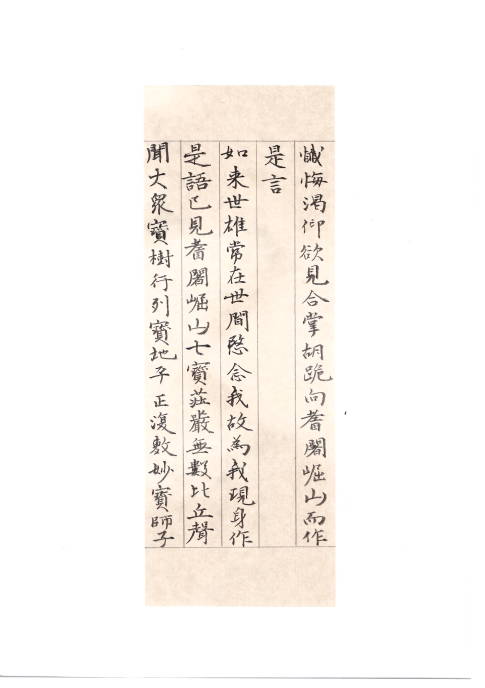 懺悔渇仰欲見合掌胡跪向耆闍崛山而作
是言
如来世雄常在世間愍念我故為我現身作
是語已見耆闍崛山七寶荘嚴無數比丘聲
聞大衆寶樹行列寶地平正復敷妙寶師子